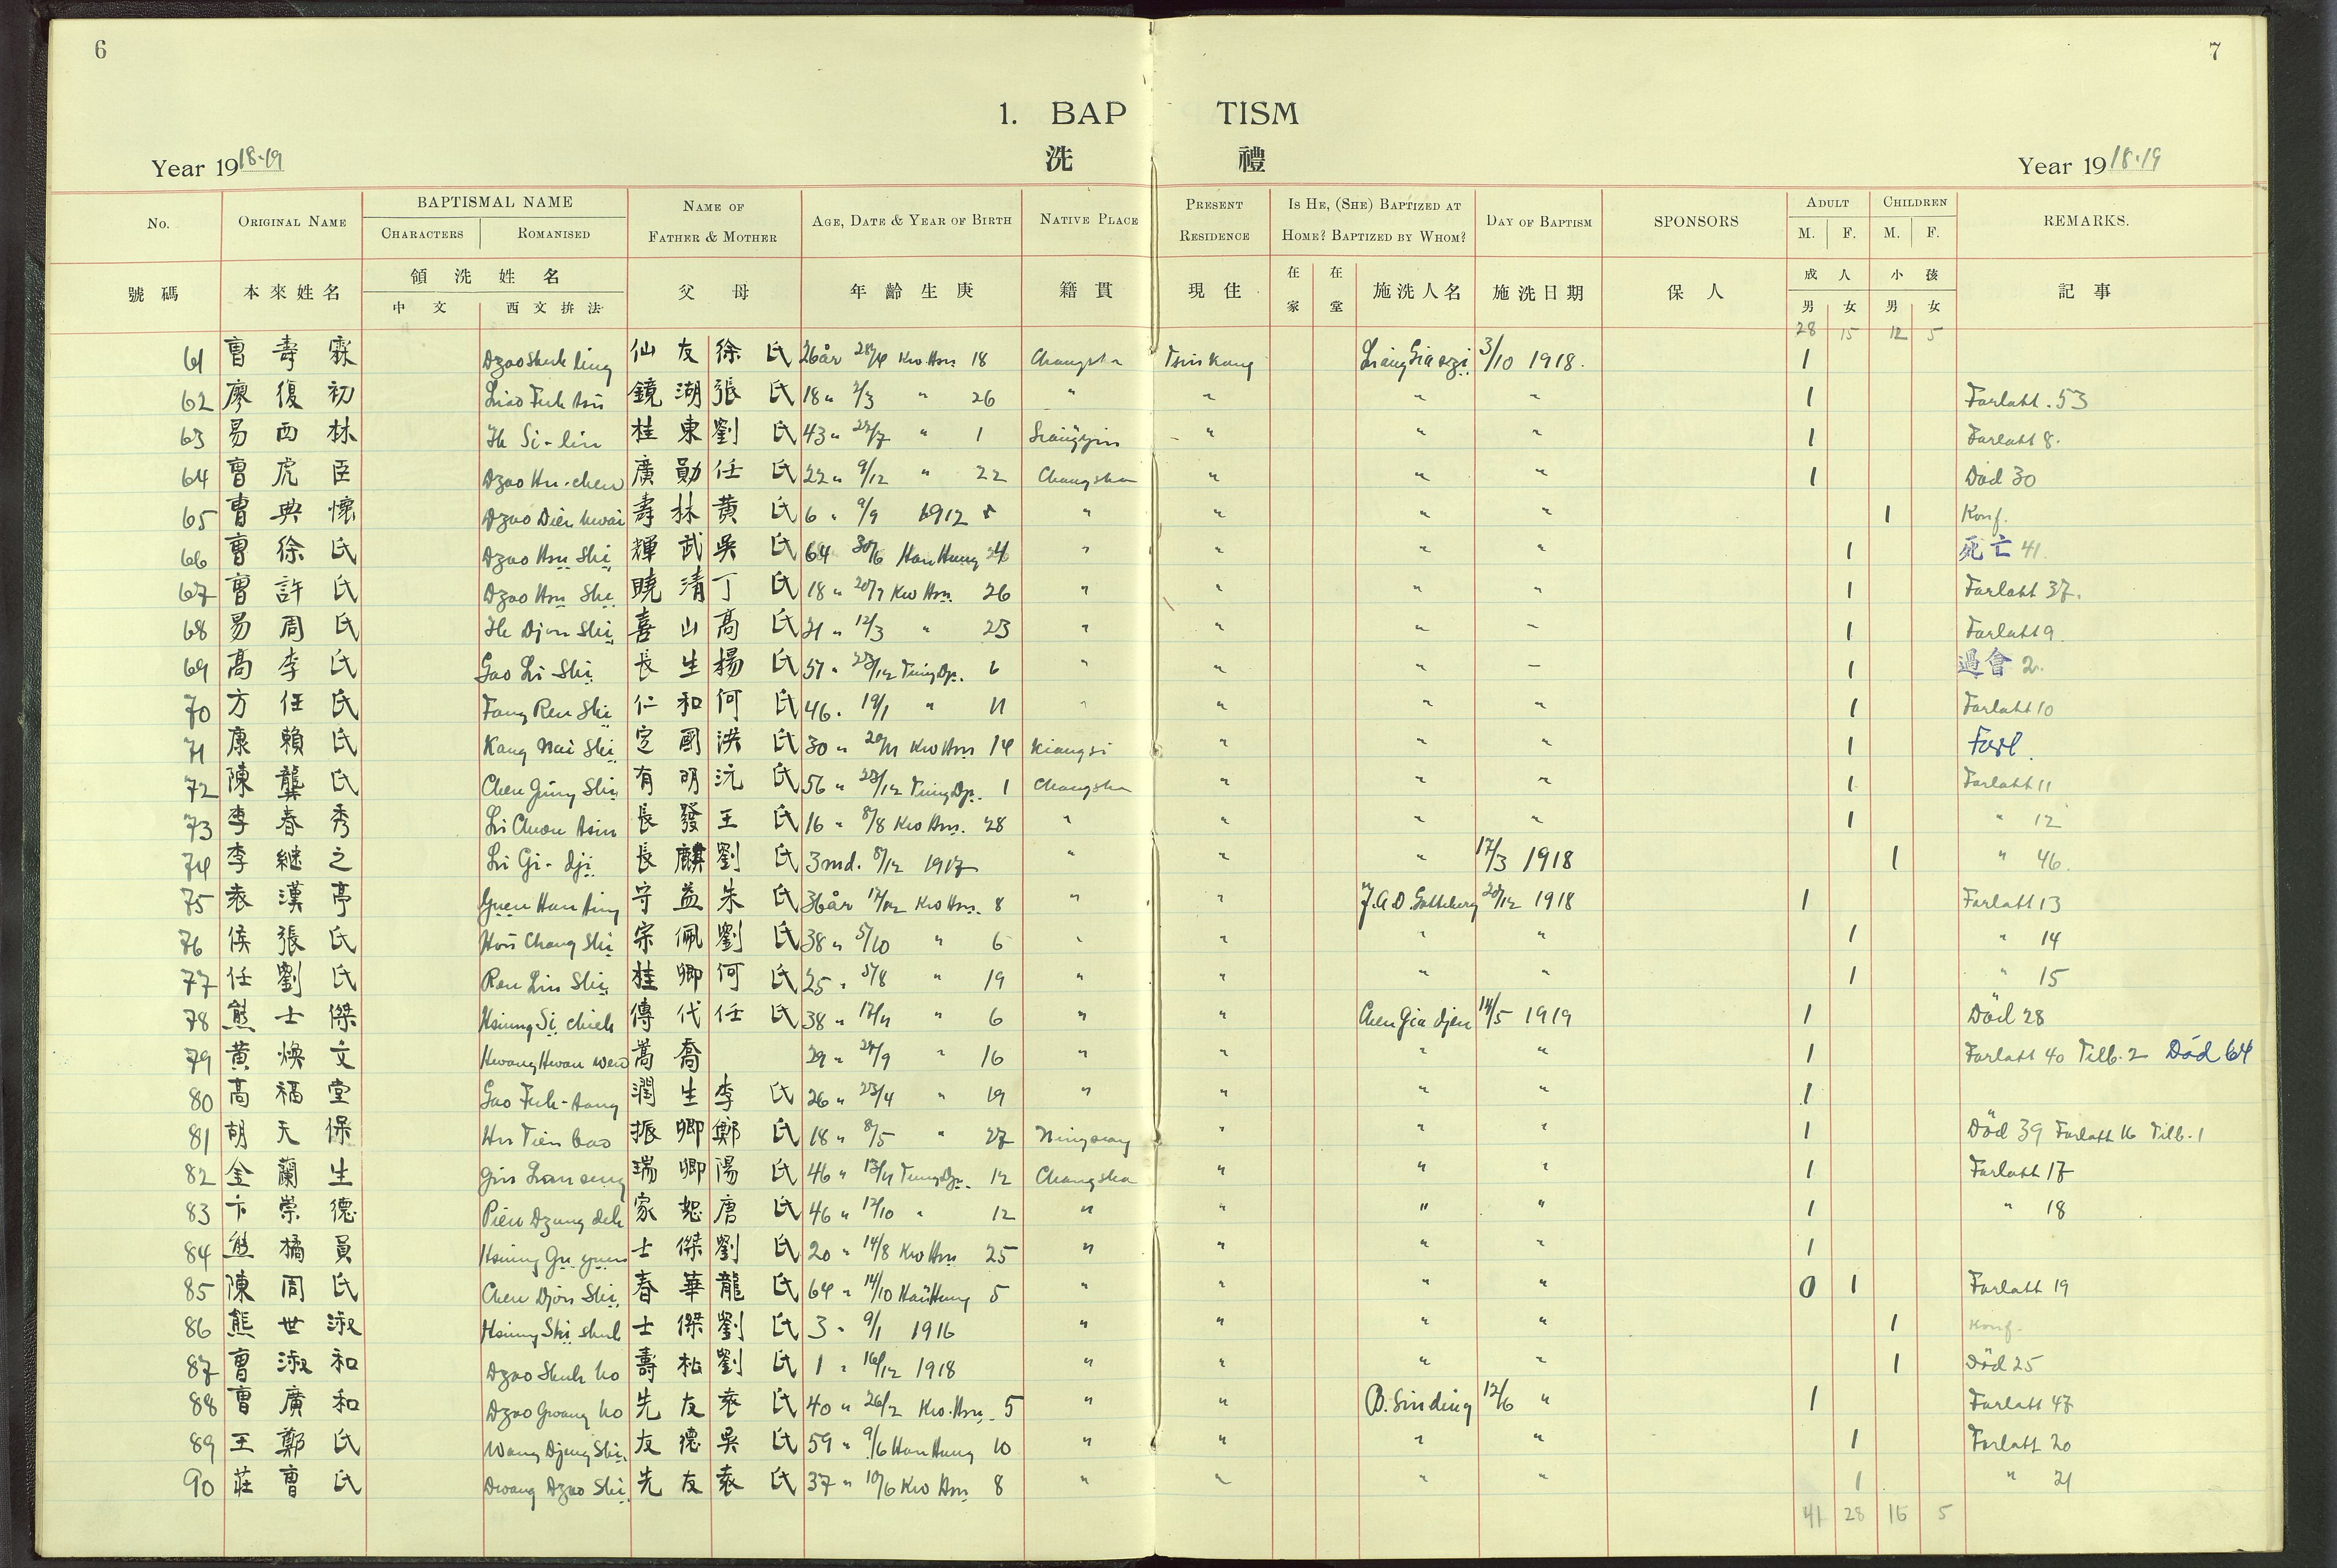 6
7
1. BAP TISM
洗 禮
Year 1918-19
Year 1918-19
No. ORIGINAL NAME BAPTISMAL NAME CHARACTERS ROMANISED NAME OF FATHER & MOTHER AGE, DATE & YEAR OF BIRTH NATIVE PLACE PRESENT RESIDENCE IS HE, (SHE) BAPTIZED AT HOME? BAPTIZED BY WHOM? DAY OF BAPTISM SPONSORS ADULT M. F. CHILDREN M. F. REMARKS.
號碼 本來姓名 領洗姓名 中文 西文拚法 父母 年齡生庚 籍貫 現住 在家 在堂 施洗人名 施洗日期 保人 成人 男 女 小孩 男 女 記事
28 15 12 5
61 曹壽霖 Dzao Shuh ling 仙友 徐氏 26 år 28/4 Kwo Hsü 18 Changsha Tsinkang 3/10 1918. 1
62 廖復初 Liao Fuh tsu 鏡湖 張氏 18 " 2/3 " 26 " " " " 1 Forlatt. 53
63 易西林 Ih Si-lin 桂東 劉氏 43 " 27/7 " 1 " " " 1 Forlatt 8.
64 曹虎臣 Dzao Hu-chen 廣勛 任氏 22 " 9/12 " 22 Changsha " " " 1 Död 30
65 曹典懷 Dzao Dien hwai 壽林 黄氏 6 " 9/9 1912 " " " " 1 Konf.
66 曹徐氏 Dzao Hsu Shi 輝武 吳氏 64 30/6 Han Hung 24 " " " " 1 死亡 41.
67 曹許氏 Dzao Hsu Shi 曉清 丁氏 18 " 20/7 Kwo Hsü 26 " " " " 1 Forlatt 37.
68 易周氏 Ih Djou Shi 喜山 高氏 21 " 12/3 " 23 " " " " 1 Forlatt 9.
69 高李氏 Gao Li Shi 長生 楊氏 57 " 23/12 Tung Dji. 6 " " " " 1 過會 2.
70 方任氏 Fang Ren Shi 仁和 何氏 46 " 19/1 " 11 " " " " 1 Forlatt 10
71 康賴氏 Kang Nai Shi 定國 洪氏 30 " 20/11 Kwo Hsü 14 Kiangsi " " " 1 Forl.
72 陳龔氏 Chen Gung Shi 有明 沅氏 56 " 23/12 Tung Dji. 1 Changsha " " " 1 Forlatt 11
73 李春秀 Li Chuen hsiu 長發 王氏 16 " 8/8 Kwo Hsü. 28 " " " " 1 " 12
74 李継之 Li Gi-dji 長麒 劉氏 3 md. 8/12 1917 " " 17/3 1918 1 " 46.
75 袁漢亭 Yuen Han ting 守益 朱氏 36 år 17/12 Kwo Hsü. 8 " " J.A.O. Gotteberg 20/12 1918 1 Forlatt 13
76 侯張氏 Hou Chang Shi 宗佩 劉氏 38 " 5/10 " 6 " " " " 1 " 14
77 任劉氏 Ren Liu Shi 桂卿 何氏 25 " 5/8 " 19 " " " " 1 " 15
78 熊士傑 Hsiung Si chieh 傳代 任氏 38 " 17/11 " 6 " " Chen Gia djen 14/5 1919 1 Död 28
79 黄煥文 Hwang Hwan wen 嵩喬 29 " 27/9 " 16 " " " " 1 Forlatt 40 Tilb. 2 Död 64
80 高福堂 Gao Fuh-tang 潤生 李氏 26 " 23/4 " 19 " " " " 1
81 胡天保 Hu Tien bao 振卿 鄭氏 18 " 8/5 " 27 Ningsiang " " " 1 Död 39 Forlatt 16 Tilb. 1
82 金蘭生 Gin Lan seng 瑞卿 陽氏 46 " 13/11 Tung Dji. 12 Changsha " " " 1 Forlatt 17
83 卞崇德 Pien Dzung deh 家恕 唐氏 46 " 17/10 " 12 " " " " 1 " 18
84 熊橘員 Hsiung Gu yuen 士傑 劉氏 20 " 14/8 Kwo Hsü 25 " " " " 1
85 陳周氏 Chen Djou Shi 春華 龍氏 64 " 14/10 Han Hung 5 " " " " 0 1 Forlatt 19
86 熊世淑 Hsiung Shi shuh 士傑 劉氏 3 " 9/1 1916 " " " " 1 Konf.
87 曹淑和 Dzao Shuh ho 壽松 劉氏 1 " 16/12 1918 " " " " 1 Död 25
88 曹廣和 Dzao Gwang ho 先友 袁氏 40 " 26/2 Kwo Hsü. 5 " " B. Sinding 12/6 " 1 Forlatt 47
89 王鄭氏 Wang Djeng Shi 友德 吳氏 59 " 9/6 Han Hung 10 " " " " 1 Forlatt 20
90 莊曹氏 Dwang Dzao Shi 先友 袁氏 37 " 10/6 Kwo Hsü 8 " " " " 1 " 21
41 28 15 5